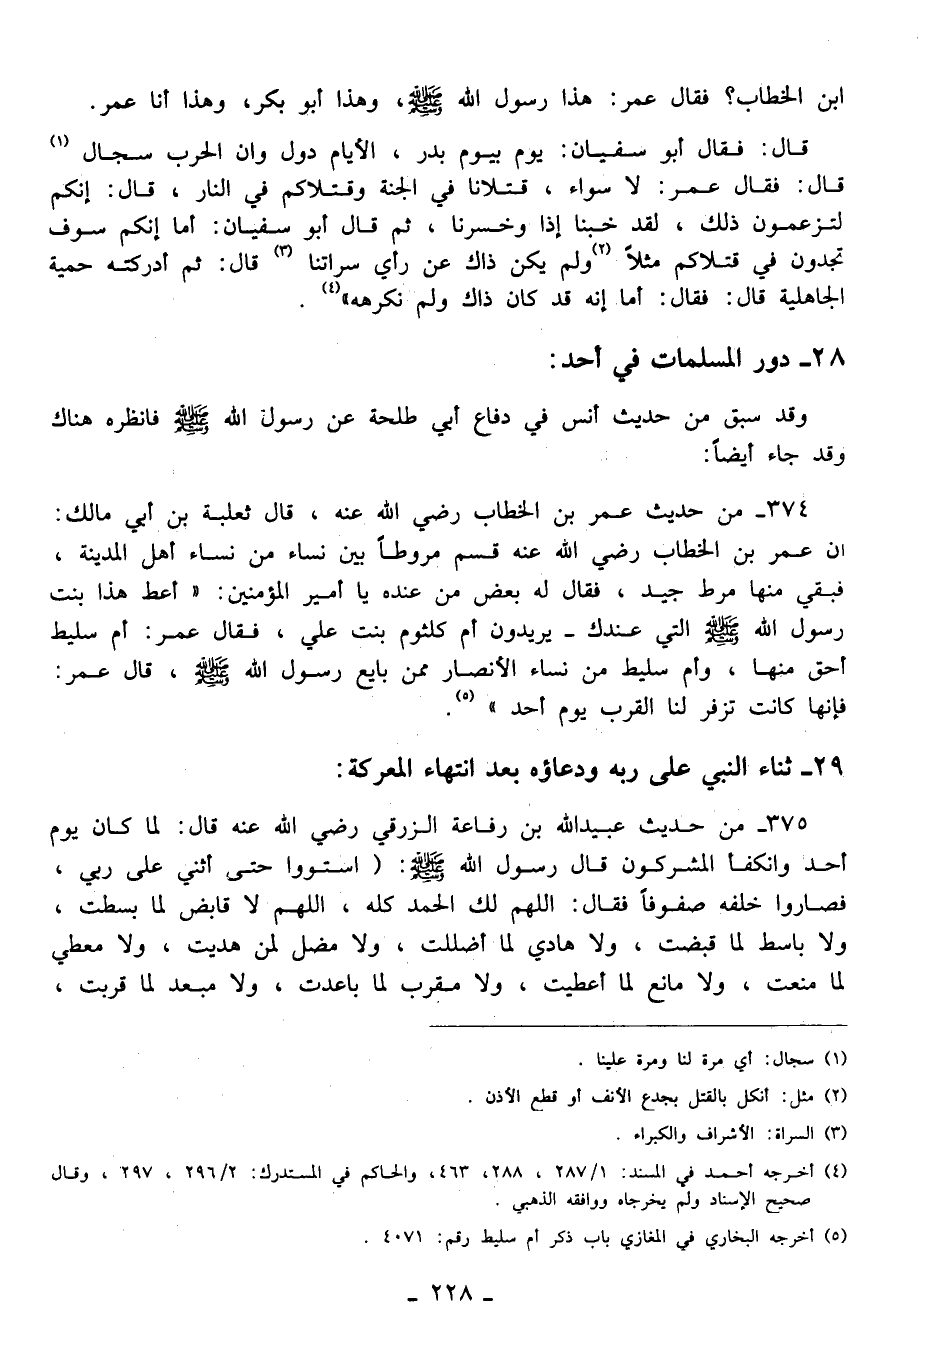 ابن الخطاب؟ فقال عمر: هذا رسول الله ﷺ، وهذا أبو بكر، وهذا أنا عمر.
قال: فقال أبو سفيان: يوم بيوم بدر ، الأيام دول وان الحرب سجال (١)
قال: فقال عمر: لا سواء ، قتلانا في الجنة وقتلاكم في النار ، قال: إنكم
لتزعمون ذلك ، لقد خبنا إذا وخسرنا ، ثم قال أبو سفيان: أما إنكم سوف
تجدون في قتلاكم مثلاً (٢) ولم يكن ذاك عن رأي سراتنا (٣) قال: ثم أدركته حمية
الجاهلية قال: فقال: أما إنه قد كان ذاك ولم نكرهه» (٤) .
٢٨ـ دور المسلمات في أحد:
وقد سبق من حديث أنس في دفاع أبي طلحة عن رسول الله ﷺ فانظره هناك
وقد جاء أيضاً:
٣٧٤ـ من حديث عمر بن الخطاب رضي الله عنه ، قال ثعلبة بن أبي مالك:
ان عمر بن الخطاب رضي الله عنه قسم مروطاً بين نساء من نساء أهل المدينة ،
فبقي منها مرط جيد ، فقال له بعض من عنده يا أمير المؤمنين: « أعط هذا بنت
رسول الله ﷺ التي عندك ـ يريدون أم كلثوم بنت علي ، فقال عمر: أم سليط
أحق منها ، وأم سليط من نساء الأنصار ممن بايع رسول الله ﷺ ، قال عمر:
فإنها كانت تزفر لنا القرب يوم أحد » (٥).
٢٩ـ ثناء النبي على ربه ودعاؤه بعد انتهاء المعركة:
٣٧٥ـ من حديث عبيدالله بن رفاعة الزرقي رضي الله عنه قال: لما كان يوم
أحد وانكفأ المشركون قال رسول الله ﷺ: ( استووا حتى أثني على ربي ،
فصاروا خلفه صفوفاً فقال: اللهم لك الحمد كله ، اللهم لا قابض لما بسطت ،
ولا باسط لما قبضت ، ولا هادي لما أضللت ، ولا مضل لمن هديت ، ولا معطي
لما منعت ، ولا مانع لما أعطيت ، ولا مقرب لما باعدت ، ولا مبعد لما قربت ،
(١) سجال: أي مرة لنا ومرة علينا .
(٢) مثل: أنكل بالقتل بجدع الأنف أو قطع الأذن .
(٣) السراة: الأشراف والكبراء .
(٤) أخرجه أحمد في المسند: ٢٨٧/١ ، ٢٨٨، ٤٦٣، والحاكم في المستدرك: ٢٩٦/٢ ، ٢٩٧ ، وقال
صحيح الإسناد ولم يخرجاه ووافقه الذهبي .
(٥) أخرجه البخاري في المغازي باب ذكر أم سليط رقم: ٤٠٧١ .
ـ ٢٢٨ ـ